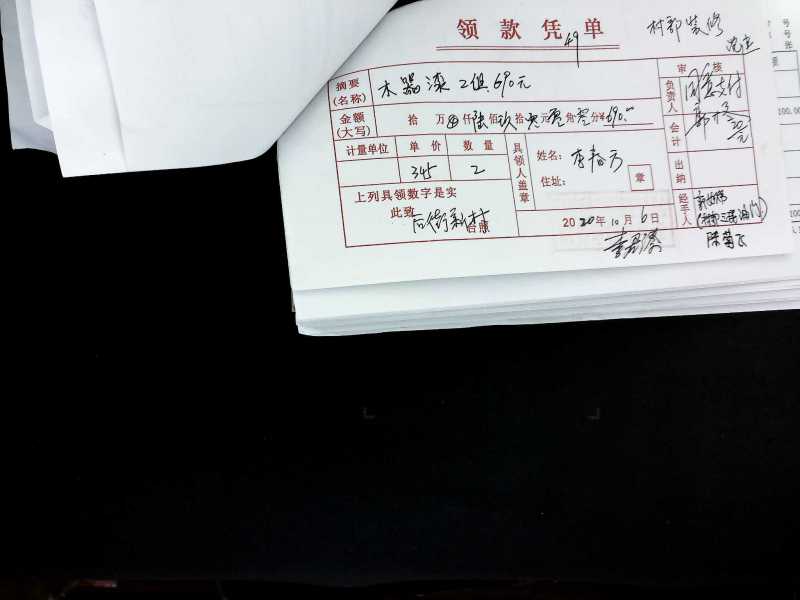 领款凭单
49
村部装修
摘要(名称) 木器漆 2俱690元
金额(大写) 拾 万 仟 陆 佰 玖 拾 元 零 角 零 分 ¥690.00
计量单位 单价 数量
345 2
上列具领数字是实
此致
后街新村 台照
具领人盖章
姓名:
住址:
章
2020年10月6日
审核
负责人 同意支付
会计
出纳
经手人
陈菊飞
号
号
张